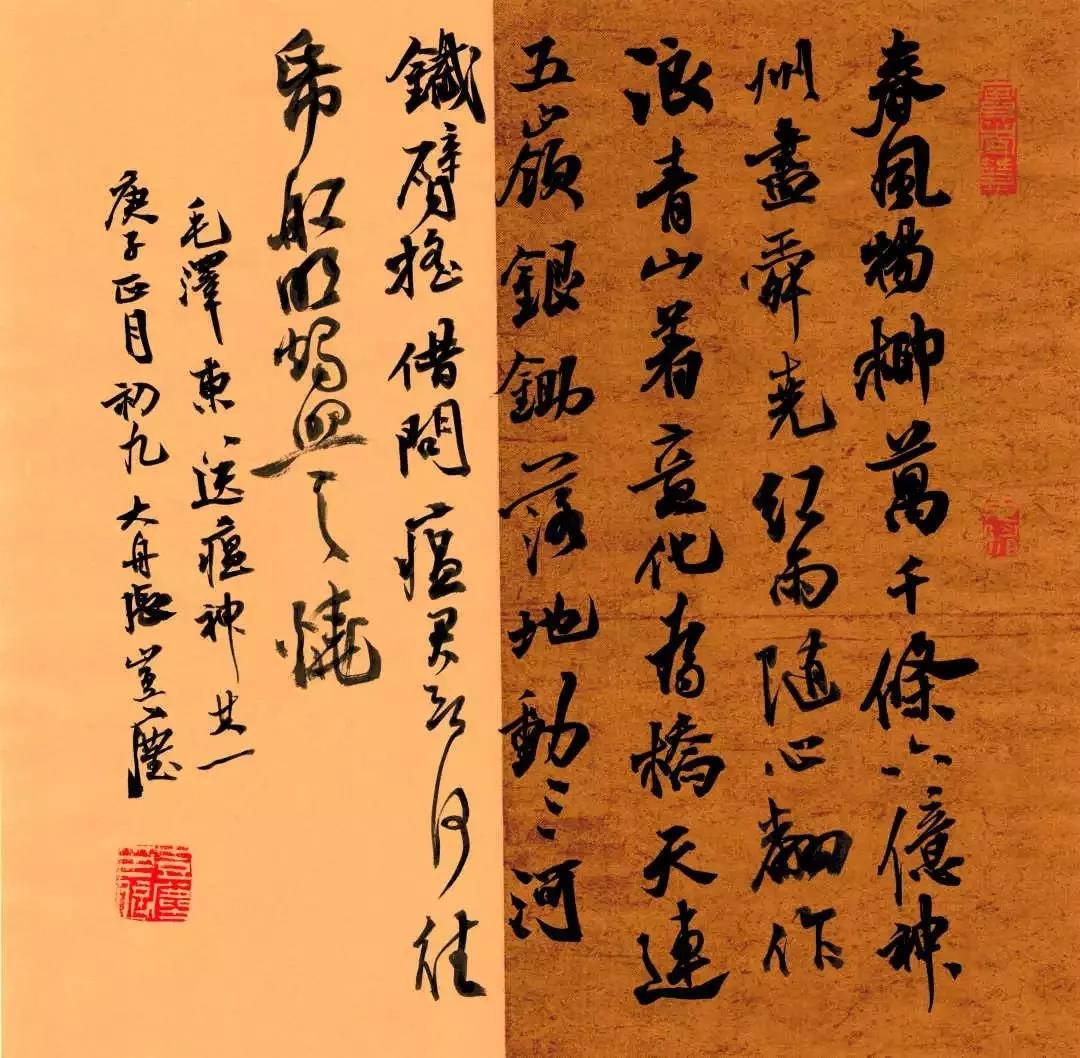 春風楊柳萬千條六億神
州盡舜堯紅雨隨心翻作
浪青山着意化為橋天連
五嶺銀鋤落地動三河
鐵臂搖借問瘟君欲何往
帋船明燭照天燒
毛澤東送瘟神其一
庚子正月初九大舟張豈塵